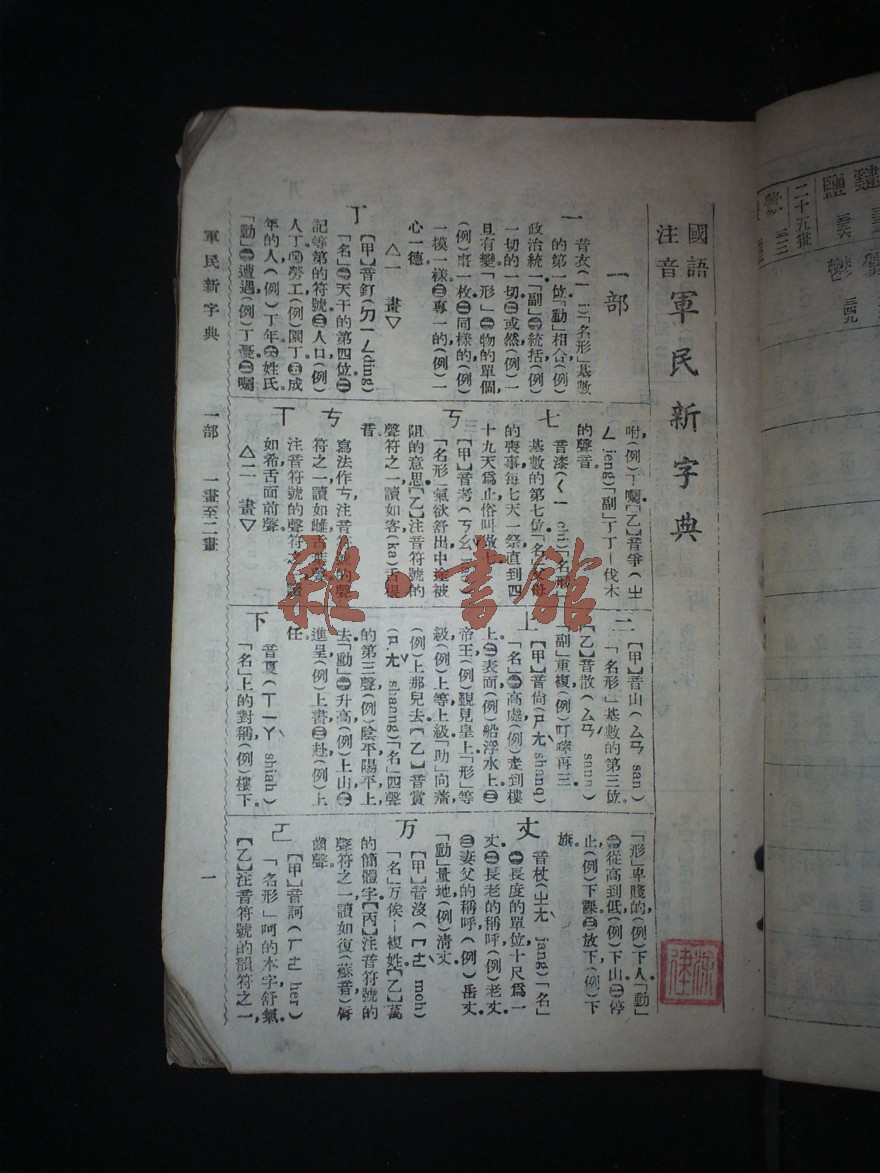 國語
注音
軍民新字典
一部
一
音衣(ㄧ i)「名形」基數
的第一位「動」相合(例)
政治統一「副」㊀統括(例)
一切的一切㊁或然(例)一
旦有變「形」㊀物的單個
(例)書一枚㊁同樣的(例)
一模一樣㊂專一的(例)一
心一德
△一 畫▽
丁
【甲】音釘(ㄉㄧㄥ ding)
「名」㊀天干的第四位㊁
記等第的符號㊂人口(例)
人丁㊃勞工(例)園丁㊄成
年的人(例)丁年㊅姓氏
「動」㊀遭遇(例)丁憂㊁囑
咐(例)丁囑【乙】音爭(ㄓ
ㄥ jeng)「副」丁丁—伐木
的聲音
七
音漆(ㄑㄧ chi)「名形」
基數的第七位「名」父母
的喪事每七天一祭直到四
十九天為止俗叫做七
丂
【甲】音考(ㄎㄠ
「名形」氣欲舒出中途被
阻的意思【乙】注音符號的
聲符之一讀如客(ke)舌根
音
ㄘ
寫法作ㄘ注音符號的聲
符之一讀如雌舌葉聲
丅
注音符號的聲符之一讀
如希舌面前聲
△二 畫▽
三
【甲】音山(ㄙㄢ san)
「名形」基數的第三位
【乙】音散(ㄙㄢˋ
「副」重複(例)叮嚀再三
上
【甲】音尙(ㄕㄤˋ shang)
「名」㊀高處(例)走到樓
上㊁表面(例)船浮水上㊂
帝王(例)覲見皇上「形」等
級(例)上等上級「助」向著
(例)上那兒去【乙】音賞
(ㄕㄤˇ shanng)「名」四聲
的第三聲(例)陰平陽平上
去「動」㊀升高(例)上山㊁
進呈(例)上書㊂赴(例)上
任
下
音夏(ㄒㄧㄚˋ shiah)
「名」上的對稱(例)樓下
「形」卑賤的(例)下人「動」
㊀從高到低(例)下山㊁停
止(例)下課㊂放下(例)下
旗
丈
音杖(ㄓㄤˋ jang)「名」
㊀長度的單位十尺為一
丈㊁長老的稱呼(例)老丈
㊂妻父的稱呼(例)岳丈
「動」量地(例)清丈
万
【甲】音沒(ㄇㄛˋ moh)
「名」万俟—複姓【乙】萬
的簡體字【丙】注音符號的
聲符之一讀如復(蘇音)脣
齒聲
【甲】音訶(ㄏㄜ her)
「名形」呵的本字舒氣
【乙】注音符號的韻符之一
軍民新字典
一部
一畫至二畫
一
雜書館
二十五畫
鹽